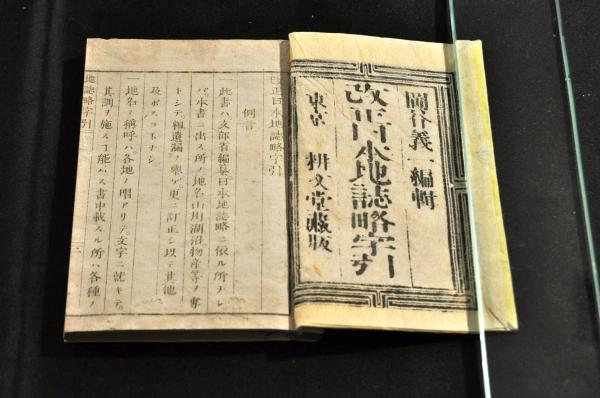 岡谷義一編輯
改正日本地誌略字引
東京 耕文堂蔵版
改正日本地誌略字引
例言
一此書ハ文部省編纂日本地誌略ニ依ル所ナレ
バ本書ニ出ス所ノ地名山川湖沼物産等ヲ
トシテ程遺漏ノ更ニ訂正シ以テ其他
及ボスコトナシ
一地名ノ稱呼ハ各地ノ唱アリテ文字ニ就キテ
其訓ヲ施スコ能ハス書中載スル所ハ各種ノ
地誌略字引